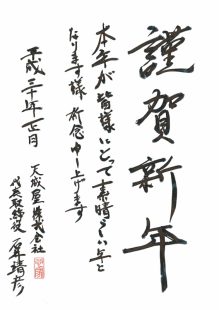 謹賀新年
本年が皆様にとって素晴らしい年と
なります様 祈念申し上げます
平成三十年正月
天成屋株式会社
代表取締役